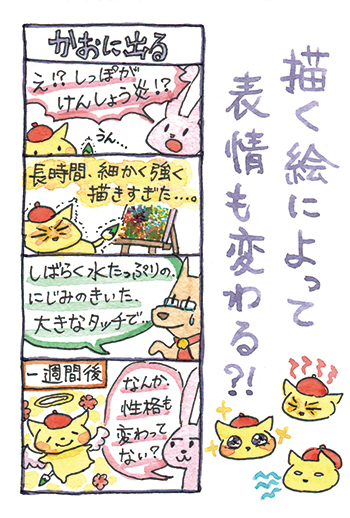 描く絵によって
表情も変わる?!
かおに出る
え!?しっぽが
けんしょう炎!?
うん…
長時間、細かく強く
描きすぎた…。
しばらく水たっぷりの、
にじみのきいた、
大きなタッチで。
一週間後
なんか
性格も
変わって
ない?